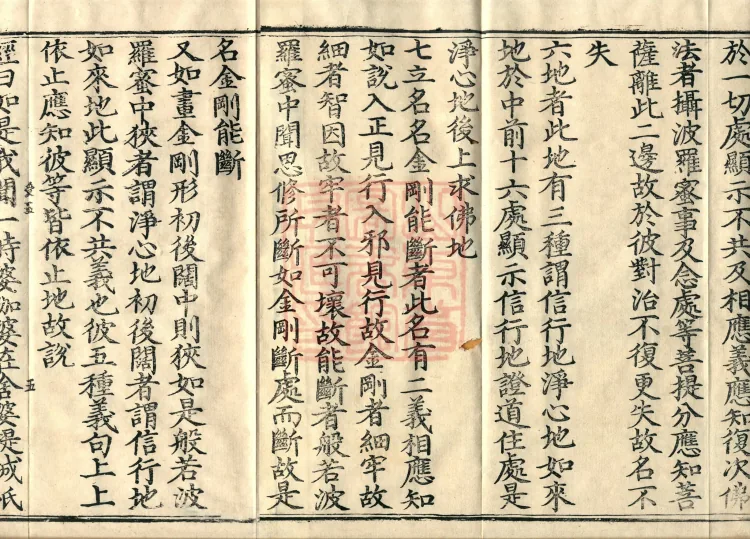 於一切處顯示不共及相應義應知復次佛
法者攝波羅蜜事及念處等菩提分應知菩
薩離此二邊故於彼對治不復更失故名不
失
六地者此地有三種謂信行地淨心地如來
地於中前十六處顯示信行地證道住處是
淨心地後上求佛地
七立名名金剛能斷者此名有二義相應知
如說入正見行入邪見行故金剛者細牢故
細者智因故牢者不可壞故能斷者般若波
羅蜜中聞思修所斷如金剛斷處而斷故是
名金剛能斷
又如畫金剛形初後闊中則狹如是般若波
羅蜜中狹者謂淨心地初後闊者謂信行地
如來地此顯示不共義也彼五種義句上上
依止應知彼等皆依止地故說
五
經曰如是我聞一時婆伽婆在舍婆提城祇